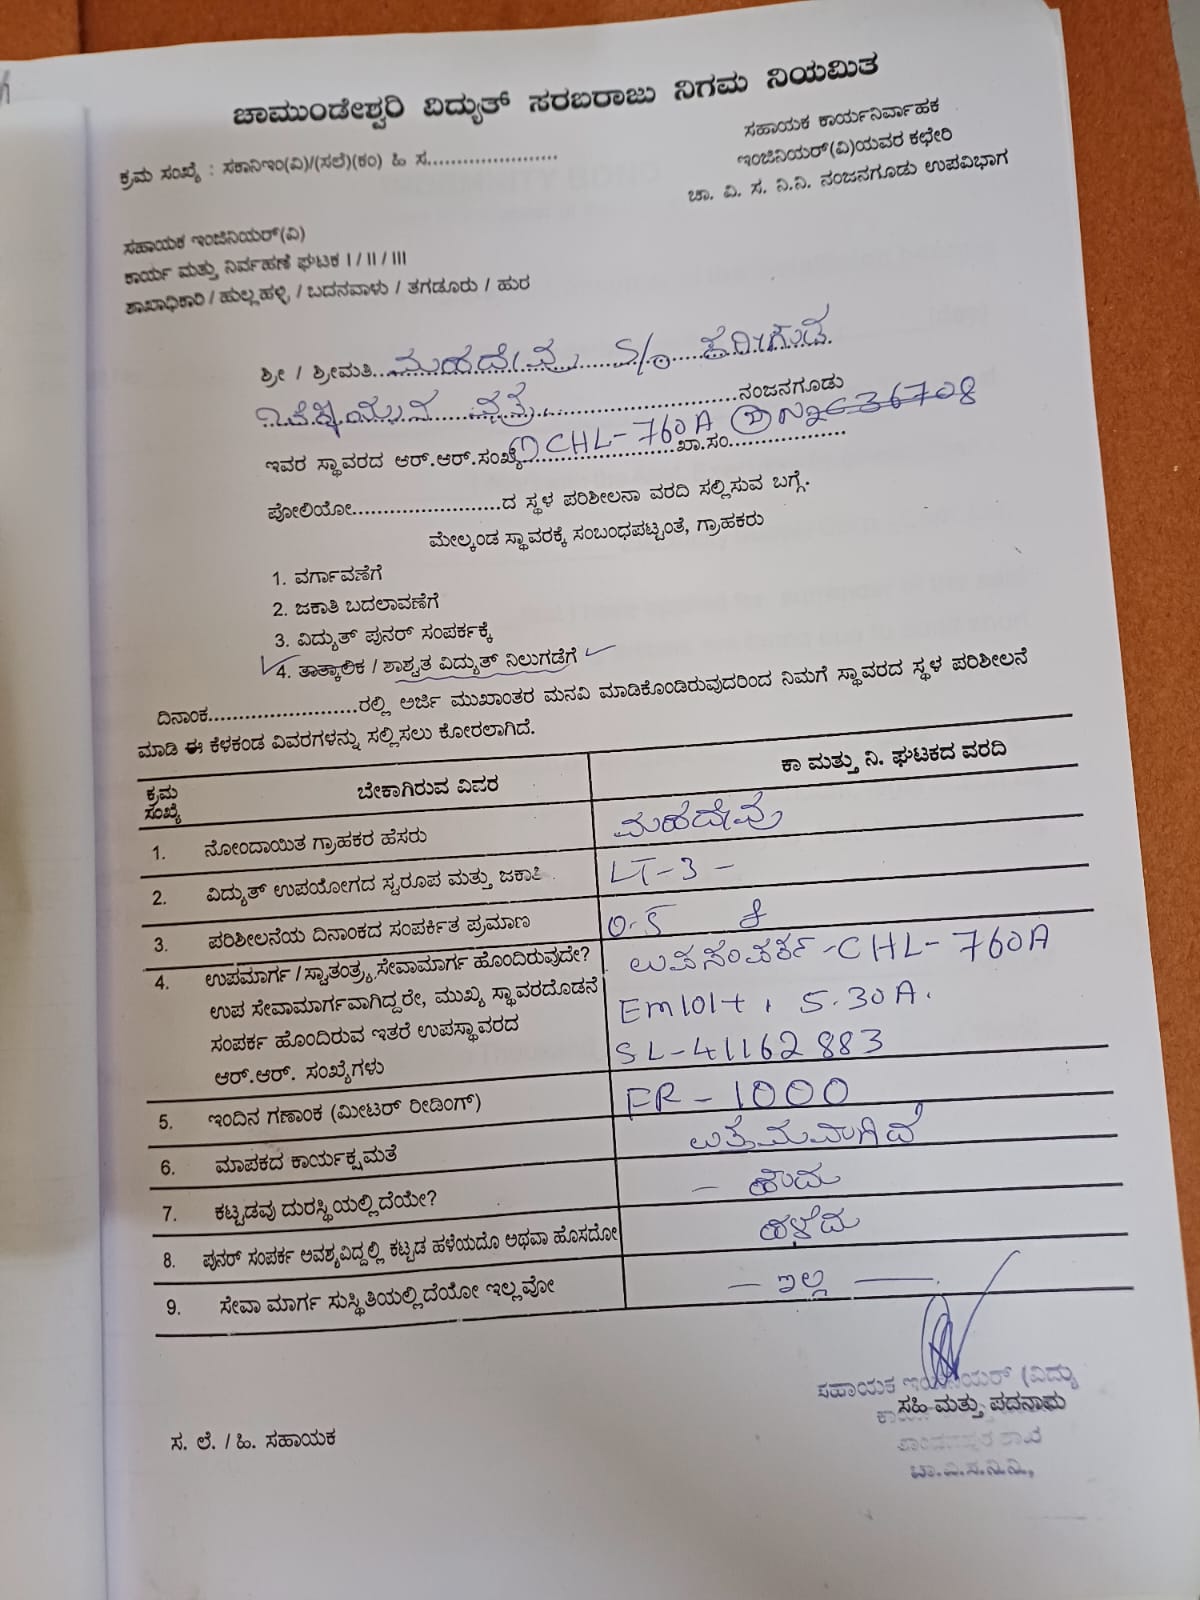 ಚಾಮುಂಡೇಶ್ವರಿ ವಿದ್ಯುತ್ ಸರಬರಾಜು ನಿಗಮ ನಿಯಮಿತ
ಕ್ರಮ ಸಂಖ್ಯೆ : ಸಕಾನಿಇಂ(ವಿ)/(ಸಲೆ)(ಕಂ) ಹಿ ಸ......................
ಸಹಾಯಕ ಕಾರ್ಯನಿರ್ವಾಹಕ
ಇಂಜಿನಿಯರ್(ವಿ)ಯವರ ಕಛೇರಿ
ಚಾ. ವಿ. ಸ. ನಿ.ನಿ. ನಂಜನಗೂಡು ಉಪವಿಭಾಗ
ಸಹಾಯಕ ಇಂಜಿನಿಯರ್(ವಿ)
ಕಾರ್ಯ ಮತ್ತು ನಿರ್ವಹಣೆ ಘಟಕ I / II / III
ಶಾಖಾಧಿಕಾರಿ / ಹುಲ್ಲಹಳ್ಳಿ / ಬದನವಾಳು / ತಗಡೂರು / ಹುರ
ಶ್ರೀ / ಶ್ರೀಮತಿ..ಮಹದೇವು S/o
ನಂಜನಗೂಡು
ಇವರ ಸ್ಥಾವರದ ಆರ್.ಆರ್.ಸಂಖ್ಯೆ ① CHL-760A ಖಾ.ಸಂ..................
ಪೋಲಿಯೋ........................ದ ಸ್ಥಳ ಪರಿಶೀಲನಾ ವರದಿ ಸಲ್ಲಿಸುವ ಬಗ್ಗೆ.
ಮೇಲ್ಕಂಡ ಸ್ಥಾವರಕ್ಕೆ ಸಂಬಂಧಪಟ್ಟಂತೆ, ಗ್ರಾಹಕರು
1. ವರ್ಗಾವಣೆಗೆ
2. ಜಕಾತಿ ಬದಲಾವಣೆಗೆ
3. ವಿದ್ಯುತ್ ಪುನರ್ ಸಂಪರ್ಕಕ್ಕೆ
4. ತಾತ್ಕಾಲಿಕ / ಶಾಶ್ವತ ವಿದ್ಯುತ್ ನಿಲುಗಡೆಗೆ
ದಿನಾಂಕ........................ರಲ್ಲಿ ಅರ್ಜಿ ಮುಖಾಂತರ ಮನವಿ ಮಾಡಿಕೊಂಡಿರುವುದರಿಂದ ನಿಮಗೆ ಸ್ಥಾವರದ ಸ್ಥಳ ಪರಿಶೀಲನೆ
ಮಾಡಿ ಈ ಕೆಳಕಂಡ ವಿವರಗಳನ್ನು ಸಲ್ಲಿಸಲು ಕೋರಲಾಗಿದೆ.
ಕ್ರಮ ಸಂಖ್ಯೆ ಬೇಕಾಗಿರುವ ವಿವರ ಕಾ ಮತ್ತು ನಿ. ಘಟಕದ ವರದಿ
1. ನೋಂದಾಯಿತ ಗ್ರಾಹಕರ ಹೆಸರು ಮಹದೇವು
2. ವಿದ್ಯುತ್ ಉಪಯೋಗದ ಸ್ವರೂಪ ಮತ್ತು ಜಕಾತಿ LT-3 -
3. ಪರಿಶೀಲನೆಯ ದಿನಾಂಕದ ಸಂಪರ್ಕಿತ ಪ್ರಮಾಣ 0.5
4. ಉಪಮಾರ್ಗ / ಸ್ವಾತಂತ್ರ್ಯ ಸೇವಾಮಾರ್ಗ ಹೊಂದಿರುವುದೇ? ಉಪಸಂಪರ್ಕ - CHL - 760A
ಉಪ ಸೇವಾಮಾರ್ಗವಾಗಿದ್ದರೇ, ಮುಖ್ಯ ಸ್ಥಾವರದೊಡನೆ 5.30A.
ಸಂಪರ್ಕ ಹೊಂದಿರುವ ಇತರೆ ಉಪಸ್ಥಾವರದ SL-41162883
ಆರ್.ಆರ್. ಸಂಖ್ಯೆಗಳು
5. ಇಂದಿನ ಗಣಾಂಕ (ಮೀಟರ್ ರೀಡಿಂಗ್) FR - 1000
6. ಮಾಪಕದ ಕಾರ್ಯಕ್ಷಮತೆ ಉತ್ತಮವಾಗಿದೆ
7. ಕಟ್ಟಡವು ದುರಸ್ಥಿಯಲ್ಲಿದೆಯೇ? - ಹೌದು
8. ಪುನರ್ ಸಂಪರ್ಕ ಅವಶ್ಯವಿದ್ದಲ್ಲಿ ಕಟ್ಟಡ ಹಳೆಯದೊ ಅಥವಾ ಹೊಸದೋ ಹಳೆದು
9. ಸೇವಾ ಮಾರ್ಗ ಸುಸ್ಥಿತಿಯಲ್ಲಿದೆಯೋ ಇಲ್ಲವೋ - ಇಲ್ಲ -
ಸಹಾಯಕ ಇಂಜಿನಿಯರ್ (ವಿದ್ಯು
ಸಹಿ ಮತ್ತು ಪದನಾಮ
ಸ. ಲೆ. / ಹಿ. ಸಹಾಯಕ
ಚಾ.ವಿ.ಸ.ನಿ.ನಿ,